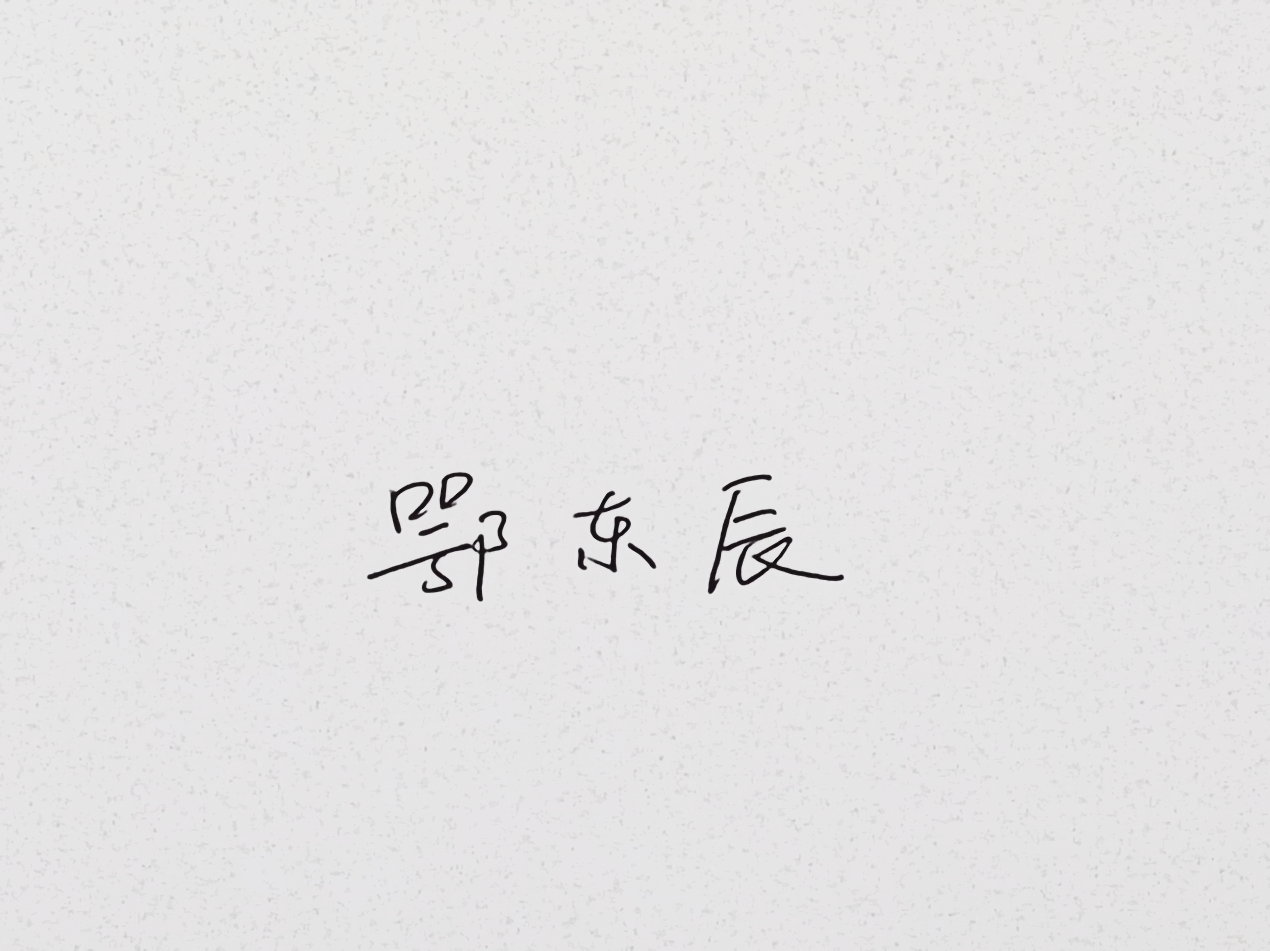 鄂东辰